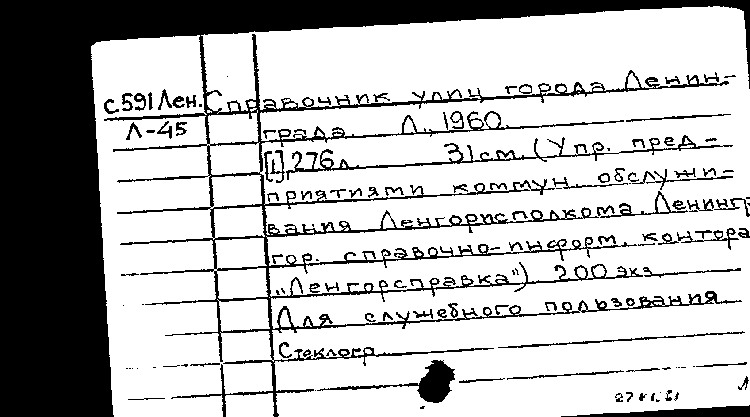 с.591 Лен. Справочник улиц города Ленин-
Л-45 града. Л., 1960.
[1], 276 л. 31 см. (Упр. пред-
приятиями коммун. обслужи-
вания Ленгорисполкома. Ленингр
гор. справочно-информ. контора
„Ленгорсправка") 200 экз.
Для служебного пользования
Стеклогр.